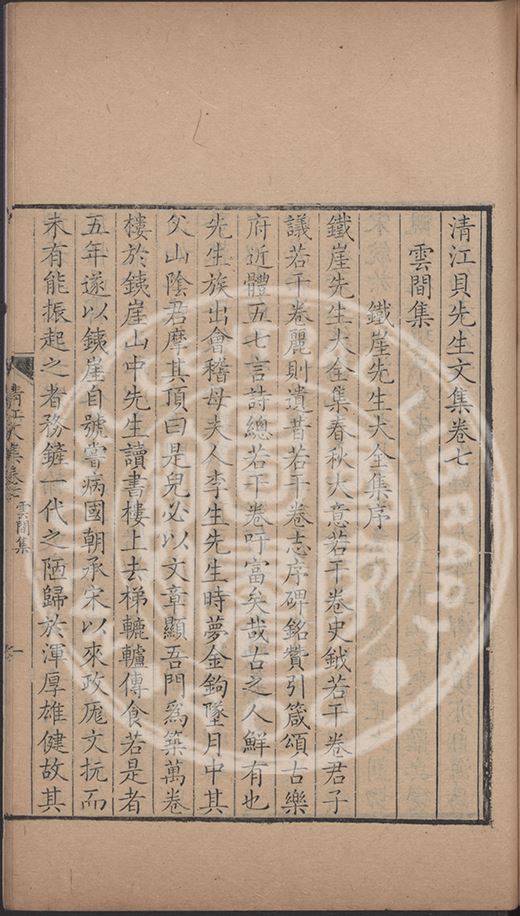 清江貝先生文集卷七
雲間集
鐵崖先生大全集序
鐵崖先生大全集春秋大意若干卷史鉞若干卷君子
議若干卷麗則遺音若干卷志序碑銘贊引箴頌古樂
府近體五七言詩總若干卷吁富矣哉古之人鮮有也
先生族出會稽母夫人李生先生時夢金鉤墜月中其
父山陰君摩其頂曰是兒必以文章顯吾門爲築萬卷
樓於鐵崖山中先生讀書樓上去梯轆轤傳食若是者
五年遂以鐵崖自號嘗病國朝承宋以來政厖文抏而
未有能振起之者務鏟一代之陋歸於渾厚雄健故其
清江文集卷七 雲間集 一